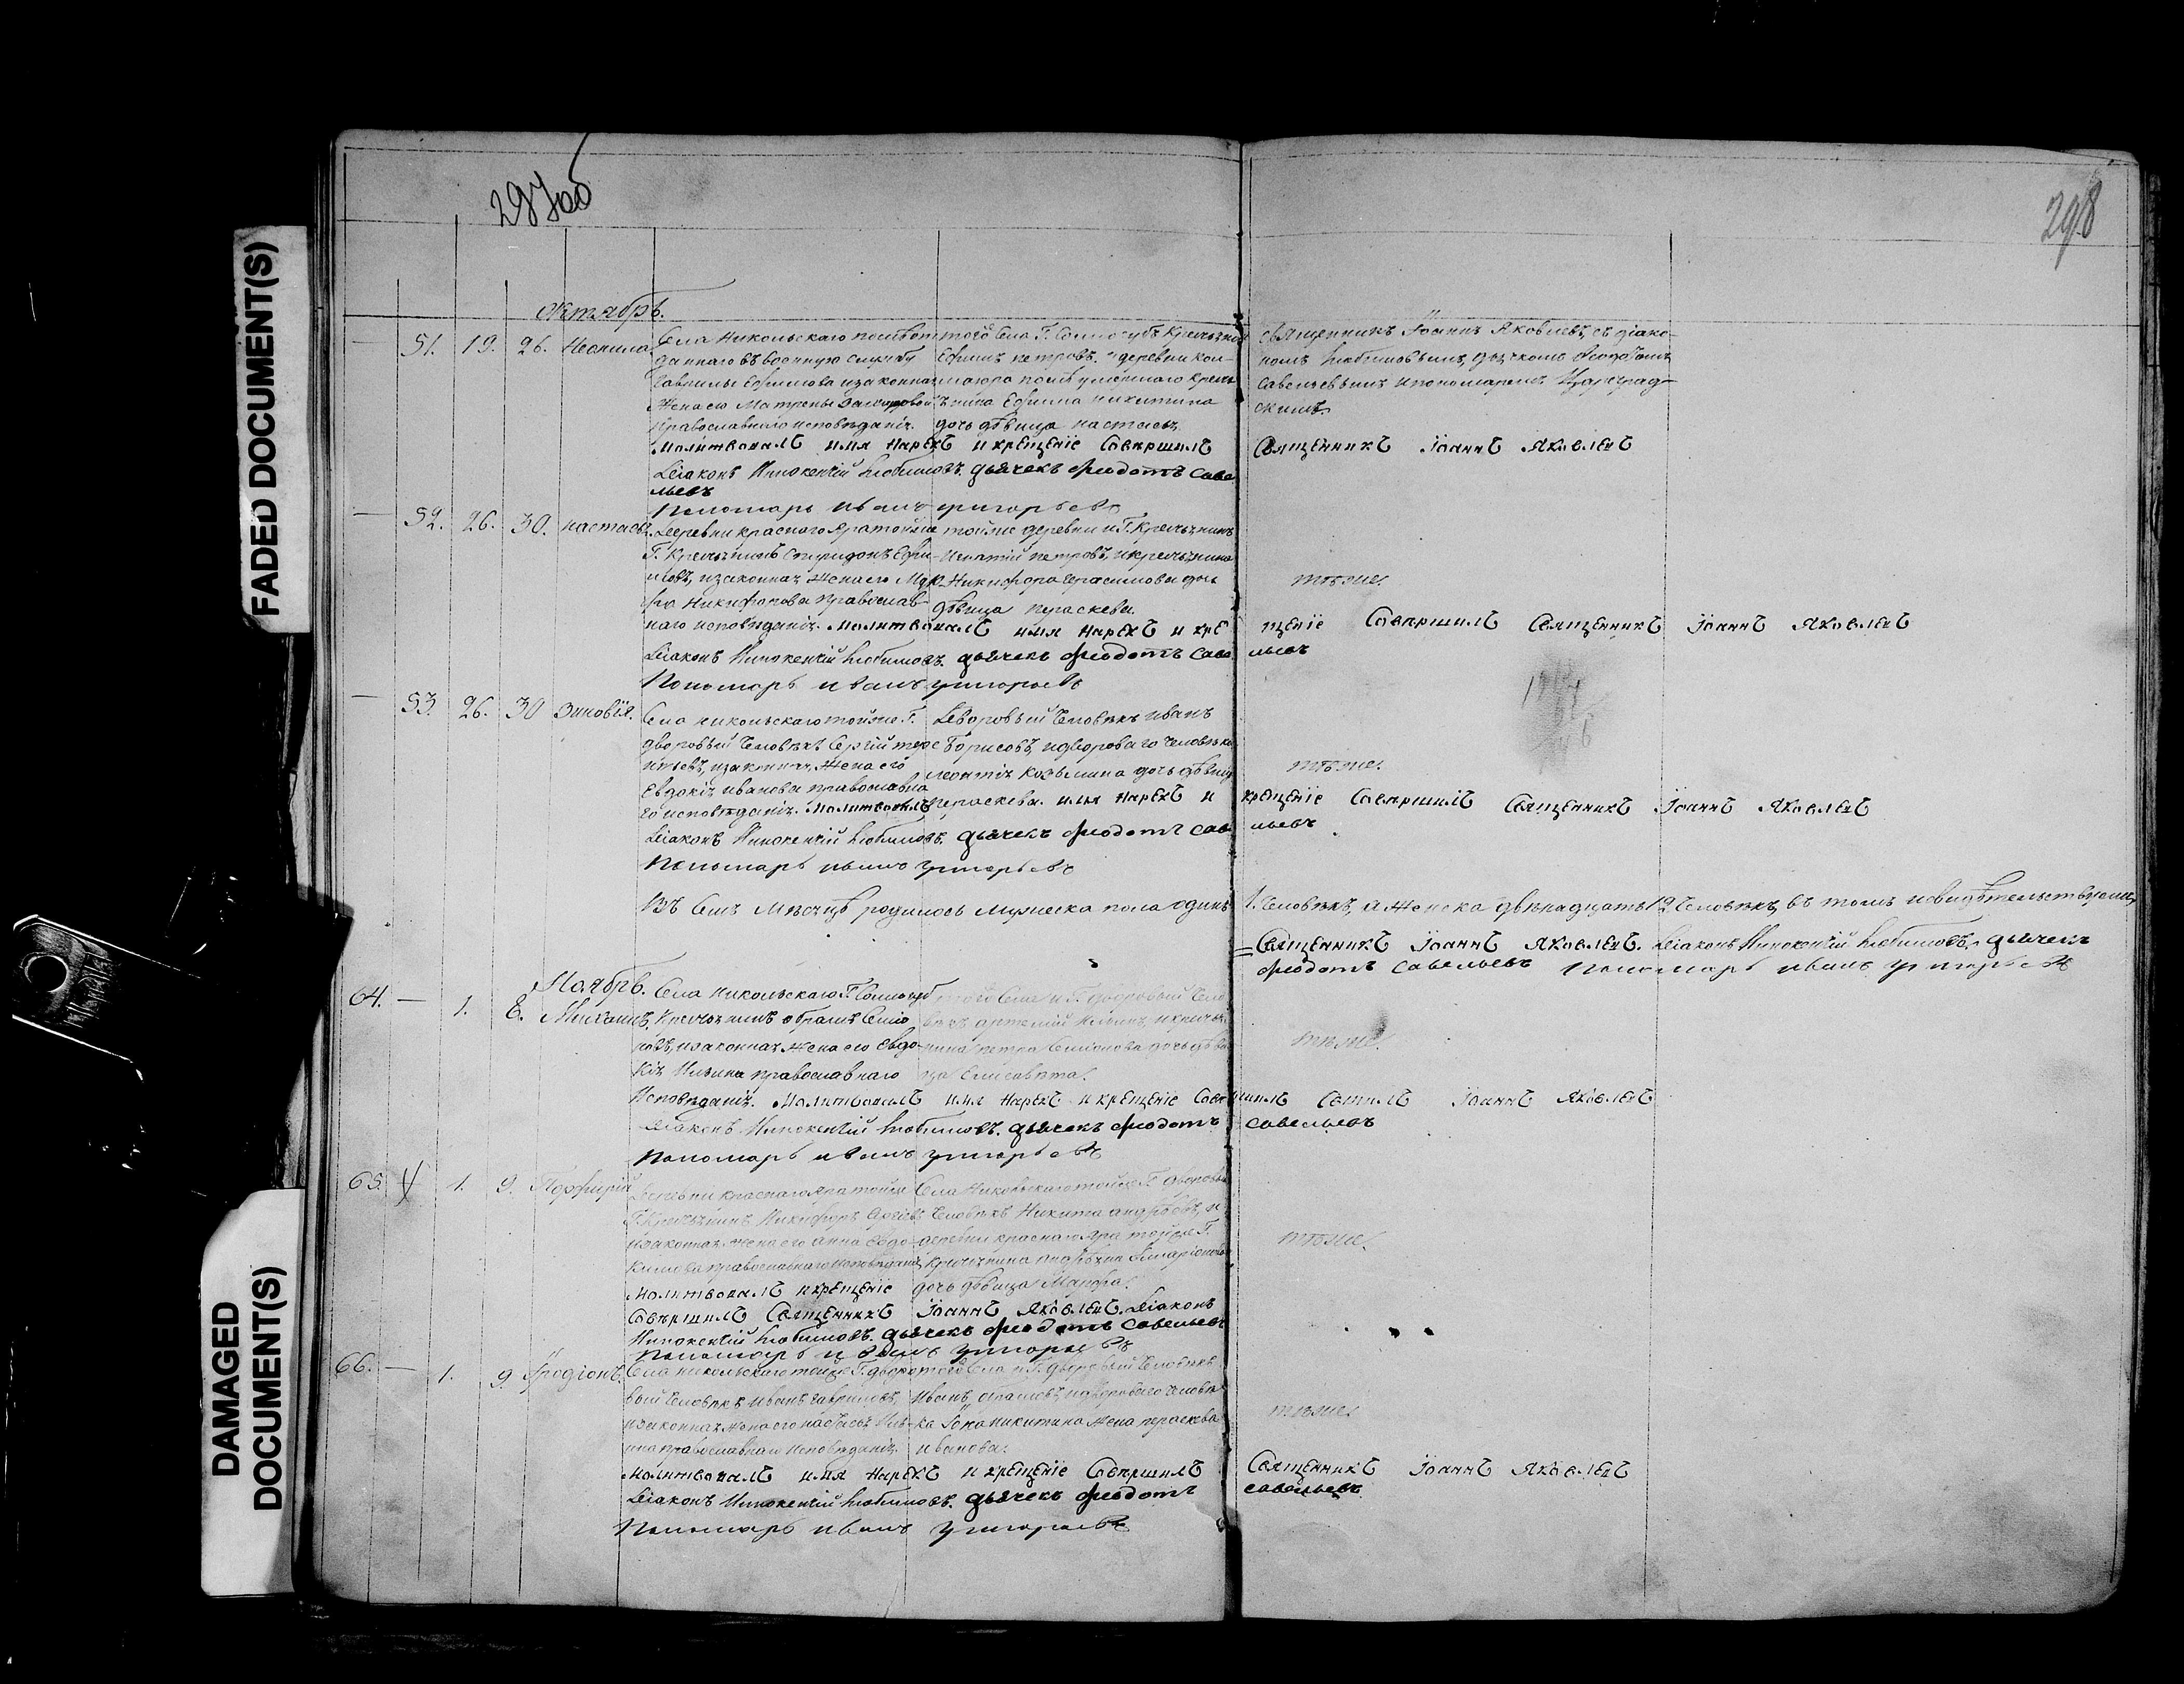 FADED DOCUMENT(S)
DAMAGED
DOCUMENT(S)
297об
298
октябрь.
51. 19. 26. Неонила.
Села Никольскаго помѣ
даннаго въ военную службу
Гаврилы Ефимова и законная
Жена его Матрена
Православнаго исповѣданія.
того Села Г.
Ефимъ петровъ, и деревни
маіора умершаго
Ефима никитина
дочь дѣвица настасья,
Священникъ Іоаннъ Яковлевъ, съ діако-
номъ Любимовымъ, дьячкомъ Ѳеодотомъ
Савельевымъ и пономаремъ Цареград-
скимъ.
Молитвовалъ имя нарекъ и крещеніе Совершилъ Священникъ Іоаннъ Яковлевъ
Діаконъ Иннокентій Любимовъ. дьячекъ Ѳеодотъ Саве
льевъ
Пономарь иванъ григорьевъ
52. 26. 30. настасья.
Деревни краснаго Яра тойже
Г. Спиридонъ Ефи-
мовъ, и законная Жена его Мар
фа Никифорова православ-
наго исповѣданія.
тойже деревни и Г.
Игнатій петровъ, и
Никифора Герасимова дочь
дѣвица параскева.
тѣже.
Молитвовалъ имя нарекъ и кре щеніе Совершилъ Священникъ Іоаннъ Яковлевъ
Діаконъ Иннокентій Любимовъ. дьячекъ Ѳеодотъ Саве льевъ
Пономарь иванъ григорьевъ
53. 26. 30 Зиновія.
Села никольскаго тойже Г.
дворовый человѣкъ Сергій тере
нтьевъ, и законная Жена его
Евдокія иванова православна
го исповѣданія.
Дворовый человѣкъ иванъ
Борисовъ, и двороваго человѣка
леонтія козьмина дочь дѣвица
параскева.
тѣже.
Молитвовалъ имя нарекъ и крещеніе Совершилъ Священникъ Іоаннъ Яковлевъ
Діаконъ Иннокентій Любимовъ. дьячекъ Ѳеодотъ Саве льевъ
Пономарь иванъ григорьевъ
Въ Семъ Мѣсяцѣ родилось Мужеска пола одинъ 1. человѣкъ, а Женска двѣнадцать 12 человѣкъ, въ томъ и свидѣтельствуемъ,
Священникъ Іоаннъ Яковлевъ. Діаконъ Иннокентій Любимовъ. дьячекъ
Ѳеодотъ Савельевъ Пономарь иванъ григорьевъ
Ноябрь.
64. 1. 8. Михаилъ.
Села Никольскаго Г.
Абрамъ Семіо
новъ, и законная Жена его Евдо-
кія Ильина православнаго
Исповѣданія.
того Села и Г. дворовый чело
вѣкъ артемій
петра Семіонова дочь дѣви
ца Елисавета.
тѣже.
Молитвовалъ имя нарекъ и крещеніе Совершилъ Іоаннъ Яковлевъ
Діаконъ Иннокентій Любимовъ. дьячекъ Ѳеодотъ Савельевъ
Пономарь иванъ григорьевъ
65. 1. 9. Порфирій
Деревни краснаго Яра тойже
Г. Никифоръ Сергіевъ
и законная жена его анна Евдо-
кимова православнаго исповѣданія
Села Никольскаго тойже Г. дворовый
человѣкъ Никита андрѣевъ, и
деревни краснаго Яра тойже Г.
дочь дѣвица Марфа.
тѣже.
Молитвовалъ и крещеніе
Совершилъ Священникъ Іоаннъ Яковлевъ. Діаконъ
Иннокентій Любимовъ. дьячекъ Ѳеодотъ Савельевъ
Пономарь иванъ григорьевъ
66. 1. 9. Иродіонъ.
Села никольскаго тойже Г. дворо
вый человѣкъ иванъ гавриловъ,
и законная Жена его настасья
православнаго исповѣданія.
того Села и Г. дворовый человѣкъ
Иванъ и двороваго человѣ
ка никитина Жена параскева
иванова.
тѣже
Молитвовалъ имя нарекъ и крещеніе Совершилъ Священникъ Іоаннъ Яковлевъ
Діаконъ Иннокентій Любимовъ. дьячекъ Ѳеодотъ савельевъ
Пономарь иванъ григорьевъ